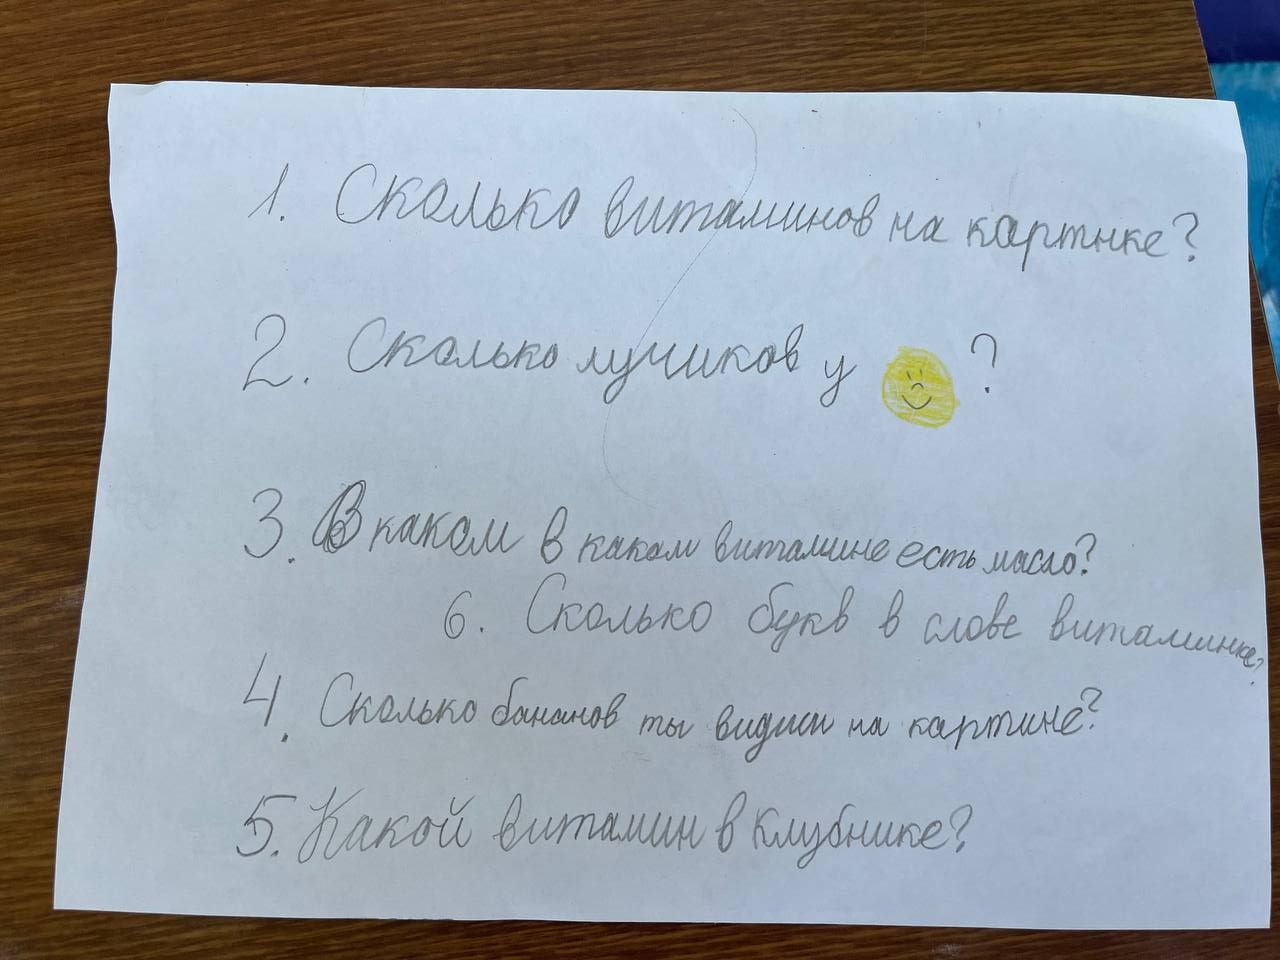 1. Сколько витаминов на картнке?
2. Сколько лучиков у ?
3. В каком в каком витамине есть масло?
6. Сколько букв в слове витаминке?
4. Сколько бананов ты видиш на картине?
5. Какой витамин в клубнике?